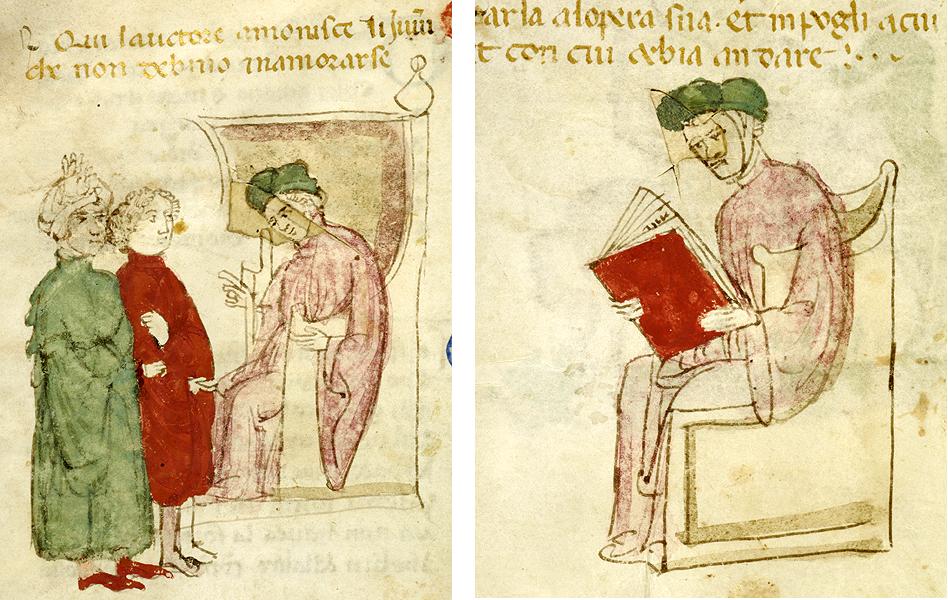 Qui lauctore amonisce
che non debino inamorarse
arla alopera sua. et inpogli acui
t con cui debia andare